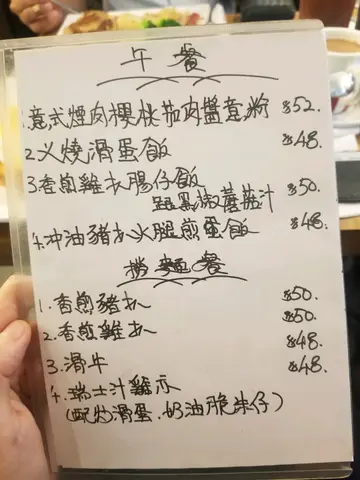 午餐
1.意式煙肉櫻桃茄肉醬意粉 $52.
2.叉燒滑蛋飯 $48.
3.香煎雞扒腸仔飯 $50.
跟黑椒蘑菇汁
4.沖油豬扒火腿煎蛋飯 $48.
撈麵餐
1.香煎豬扒 $50.
2.香煎雞扒 $50.
3.滑牛 $48.
4.瑞士汁雞亦 $48.
(配炒滑蛋.奶油脆朱仔)